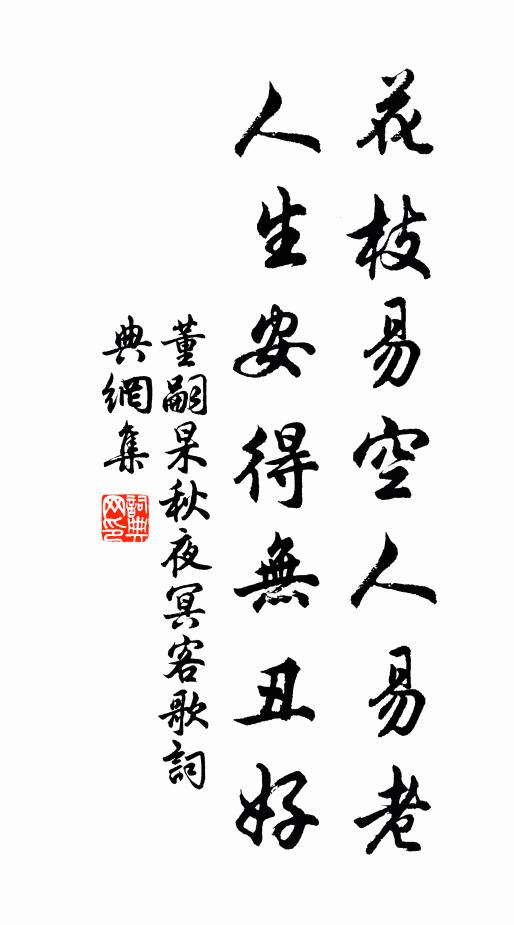 花枝易空人易老
人生安得無丑好
董嗣杲秋夜冥客歌詞
典網集
詞典网印